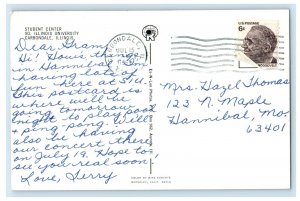 STUDENT CENTER
SO. ILLINOIS UNIVERSITY
CARBONDALE, ILLINOIS
Dear Gram,
Hi! How's things
in Hannibal? I'm
having lots of
fun here at SIU.
This postcard is
where we'll be
going tomorrow
night to play pool
& ping pong. We'll
also be having
our concert there
on July 19. Hope to
see you real soon!
Love, Terry
JUL 15
U.S. POSTAGE
6¢
Mrs. Hazel Thomas
123 N. Maple
Hannibal, Mo.
63401